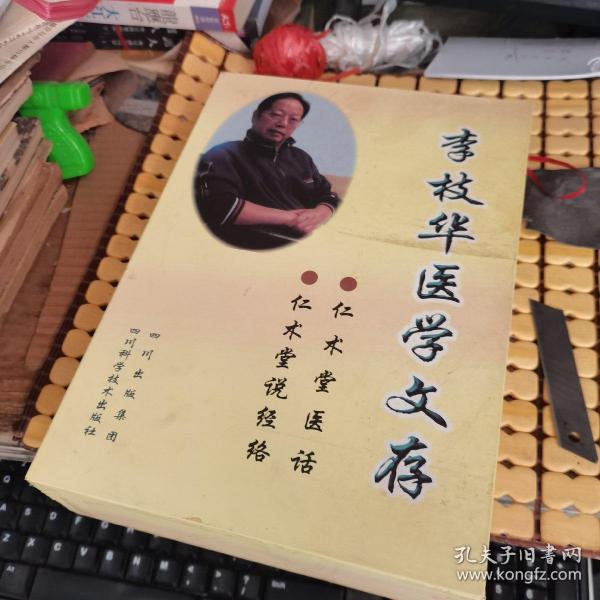 李枝华医学文存
仁术堂医话
仁术堂说经络
四川出版集团
四川科学技术出版社
孔夫子旧书网
www.kongfz.com